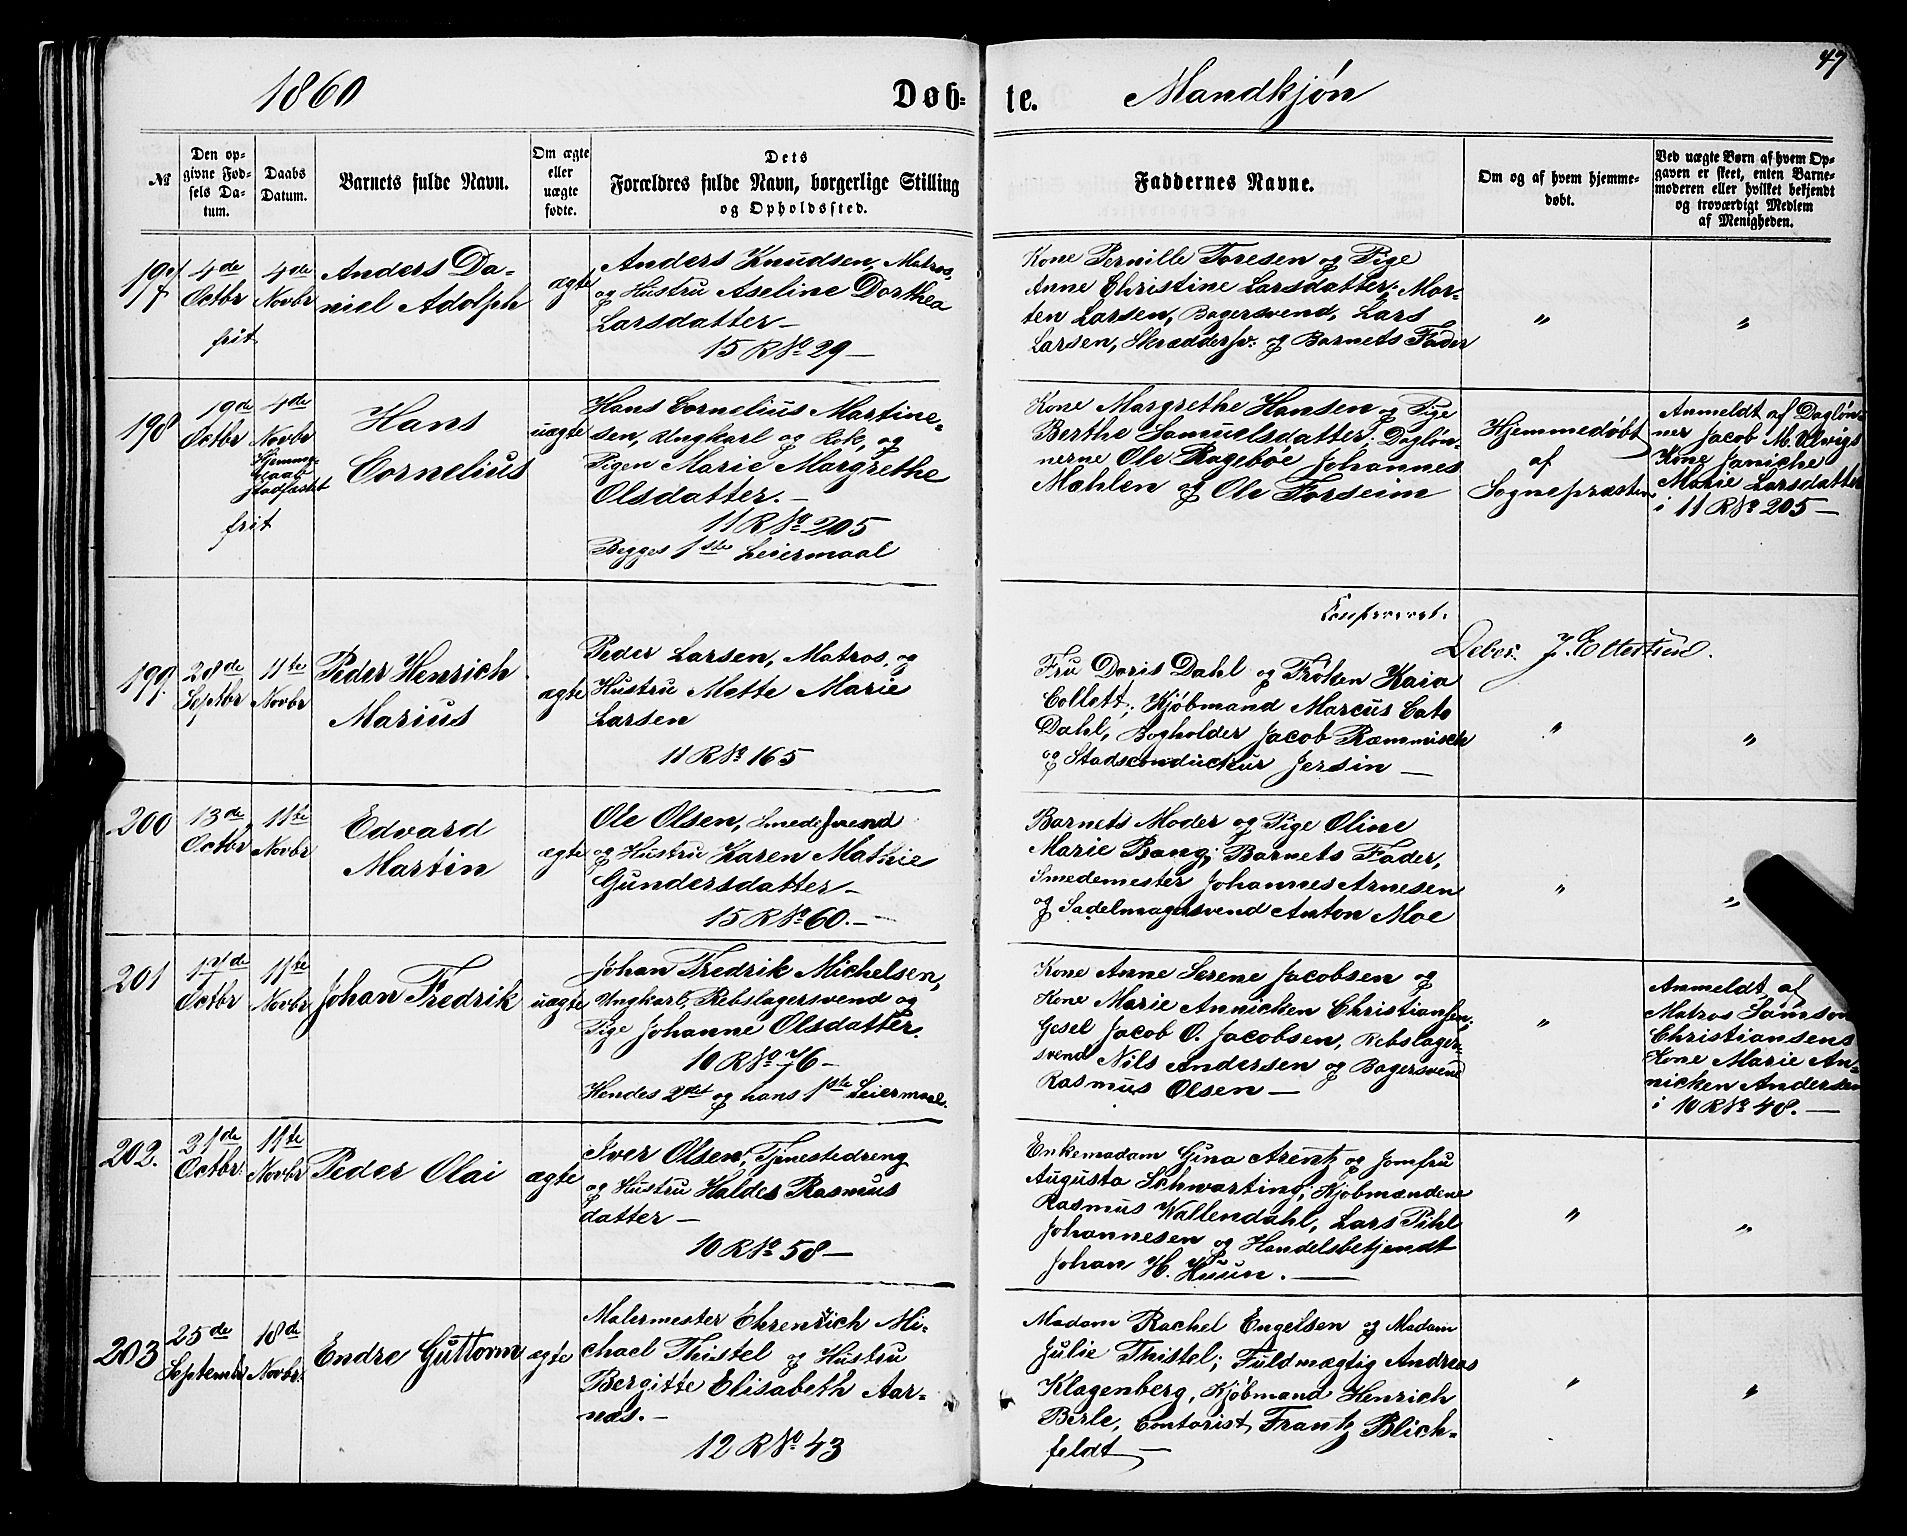 47
1860 Døb- te. Mandkjön
№
Den op-
givne Fød-
sels Da-
tum.
Daabs
Datum.
Barnets fulde Navn.
Om ægte
eller
uægte
fødte.
Dets
Forældres fulde Navn, borgerlige Stilling
og Opholdssted.
Faddernes Navne.
Om og af hvem hjemme-
døbt.
Ved uægte Børn af hvem Op-
gaven er skeet, enten Barne-
moderen eller hvilket bekjendt
og troværdigt Medlem
af Menigheden.
197
4de
Octbr
frit
4de
Novbr
Anders Da-
niel Adolph
ægte
Anders Knudsen, Matros,
og Hustru Aseline Dorthea
Larsdatter –
15 R No 29 –
Kone Pernille Toresen og Pige
Anne Christine Larsdatter; Mor-
ten Larsen, Bagersvend, Lars
Larsen, Skræddersv: og Barnets Fader
"
"
198
19de
Octbr
4de
Novbr
Hjemme-
daab
stadfæstet
frit
Hans
Cornelius
uægte
Hans Cornelius Martine-
sen, Ungkarl og Kok, og
Pigen Marie Margrethe
Olsdatter. –
11 R No 205
Begges 1ste Leiermaal
Kone Margrethe Hansen og Pige
Berthe Samuelsdatter; Dagløn-
nerne Ole Ragebøe Johannes
Mæhlen og Ole Forseim
Hjemmedøbt
af
Sognepræsten
Anmeldt af Dagløn-
ner Jacob M. Ulvigs
Kone Janiche
Marie Larsdatter
i 11 R No 205 –
Confereret.
Debes. J. Ellertsen.
199.
28de
Septbr
11te
Novbr
Peder Henrich
Marius
ægte
Peder Larsen, Matros, og
Hustru Mette Marie
Larsen
11 R No 165
Fru Doris Dahl og Frøken Kaia
Collett; Kjøbmand Marcus Cato
Dahl, Bogholder Jacob Ræmmisch
og Stadsconducteur Jersin –
"
"
200
13de
Octbr
11te
Novbr
Edvard
Martin
ægte
Ole Olsen, Smedesvend
og Hustru Karen Mathie
Gundersdatter –
15 R No 60. –
Barnets Moder og Pige Oline
Marie Bang; Barnets Fader,
Smedemester Johannes Arnesen
og Sadelmagersvend Anton Moe
"
"
201
17de
Octbr
11te
Novbr
Johan Fredrik
uægte
Johan Fredrik Michelsen,
Ungkarl, Rebslagersvend og
Pige Johanne Olsdatter.
10 R No 76 –
Hendes 2det og hans 1ste Leiermaal.
Kone Anne Serene Jacobsen og
Kone Marie Annicken Christiansen;
Gesel Jacob O. Jacobsen, Rebslager-
svend Nils Andersen og Bagersvend
Rasmus Olsen –
"
Anmeldt af
Matros Samson
Christiansens
Kone Marie An-
nicken Andersen
i 10 R No 48. –
202.
21de
Octbr.
11te
Novbr
Peder Olai
ægte
Iver Olsen, Tjenestedreng
og Hustru Haldes Rasmus
datter –
10 R No 58 –
Enkemadam Gina Arentz og Jomfru
Augusta Schwarting; Kjøbmændene
Rasmus Wallendahl, Lars Pihl
Johannesen og Handelsbetjendt
Johan H. Kuun. –
"
"
203
25de
Septembr
18de
Novbr.
Endre Guttorm
ægte
Malermester Ehrenrich Mi-
chael Thistel og Hustru
Bergitte Elisabeth Aar-
næs. –
12 R No 43
Madam Rachel Engelsen og Madam
Julie Thistel; Fuldmægtig Andreas
Klagenberg, Kjøbmand Henrich
Berle, Contorist Frantz Blich-
feldt –
"
"